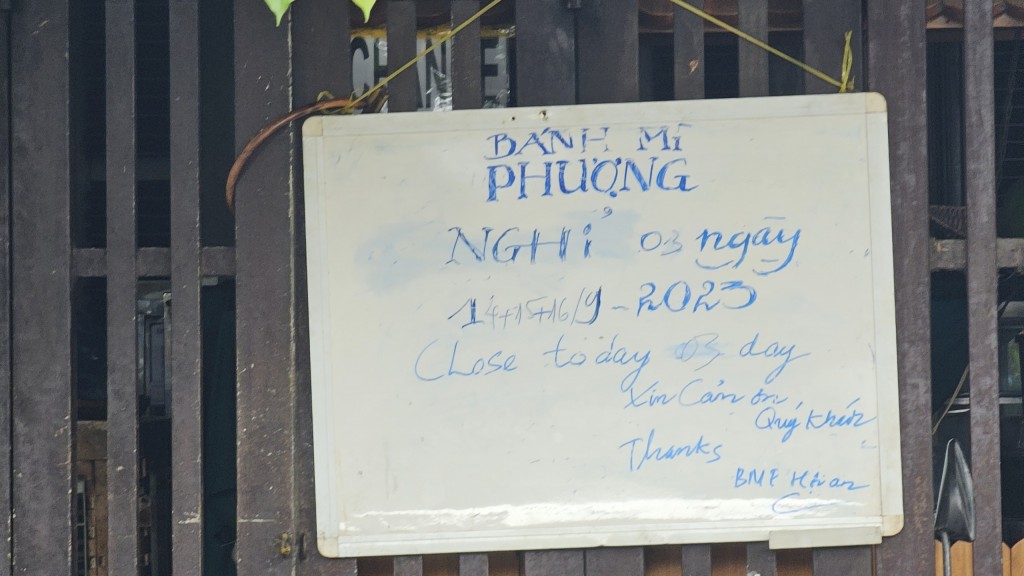 BÁNH MÌ
PHƯỢNG
NGHỈ 03 ngày
14+15+16/9-2023
Close today 03 day
Xin Cảm ơn,
Quý Khách
Thanks
BMF Hội an